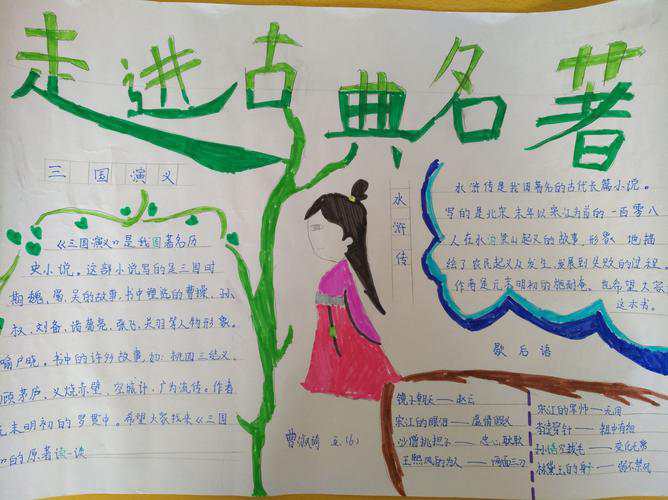 走进古典名著
三国演义
《三国演义》是我国著名历
史小说。这部小说写的是三国时
期魏、蜀、吴的故事,书中塑造的曹操、孙
权、刘备、诸葛亮、张飞、关羽等人物形象。
喻户晓。书中的许多故事,如:桃园三结义、
顾茅庐、火烧赤壁、空城计,广为流传。作者
元末明初的罗贯中。希望大家找来《三国
的原著读一读
水浒传
水浒传是我国著名的古代长篇小说。
写的是北宋末年以宋江为首的一百零八
人在水泊梁山起义的故事,形象地描
绘了农民起义从发生、发展到失败的过程
作者是元末明初的施耐庵。也希望大家
这本书。
歇后语
镜子朝天——赵云
宋江的眼泪——虚情假义
沙僧挑担子——忠心耿耿
王熙凤的为人——两面三刀
宋江的军师——无用
李逵穿针——粗中有细
孙悟空拔毛——变化无穷
林黛玉的身子——弱不禁风
曹淑琦 五.(6)